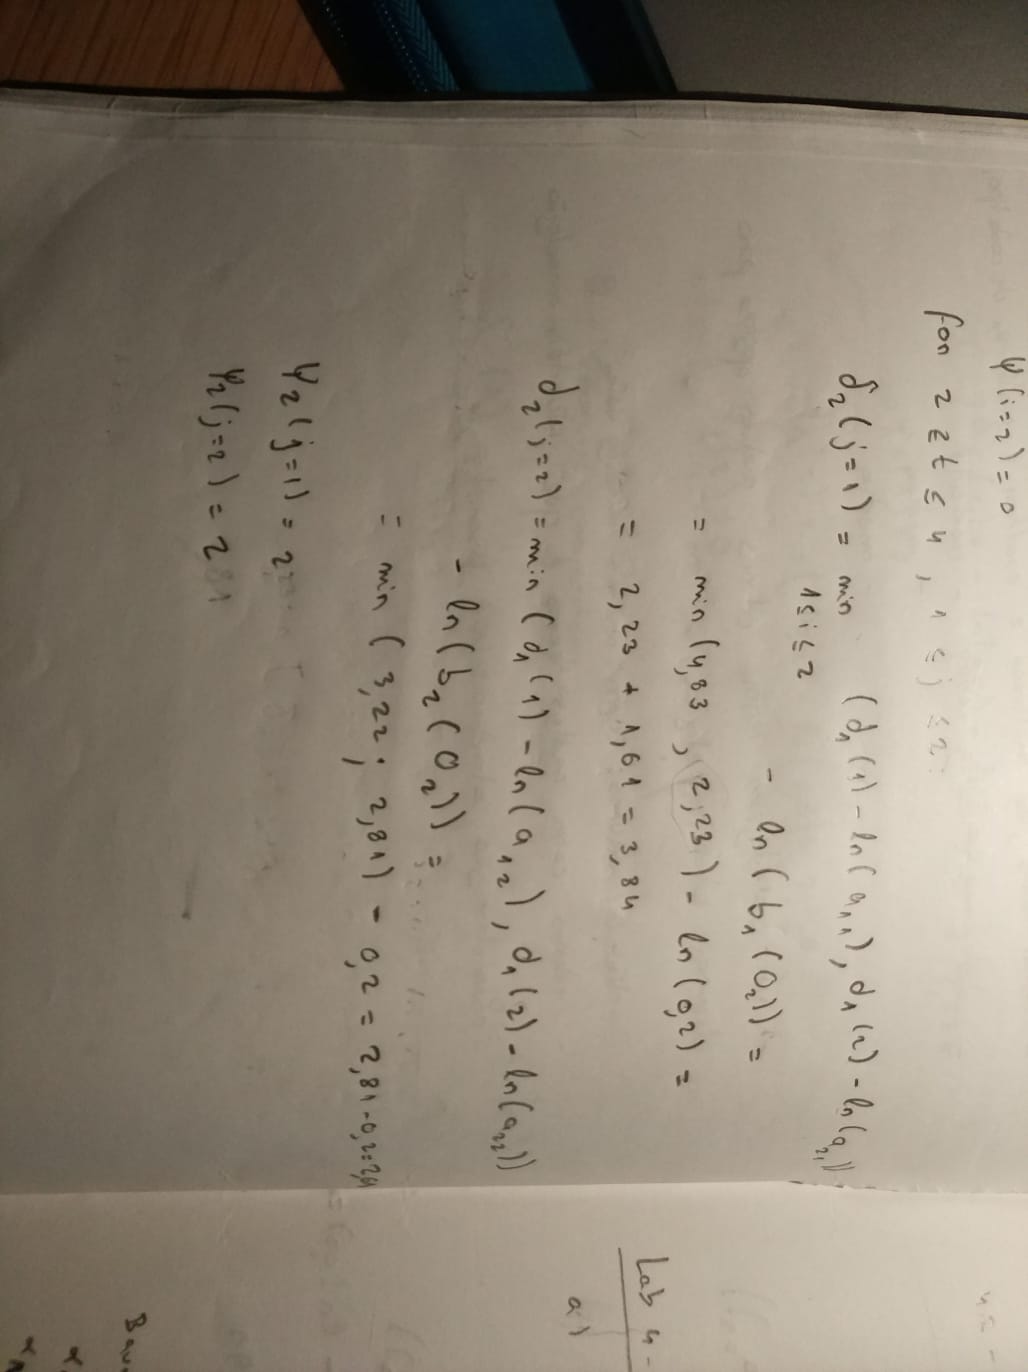 ψ(i=2) = 0
for 2 ≤ t ≤ 4, 1 ≤ j ≤ 2
δ₂(j=1) = min (d₁(1) - ln(a₁₁), d₁(2) - ln(a₂₁))
1≤i≤2
- ln(b₁(O₂)) =
= min(4,83, 2,23) - ln(0,2) =
= 2,23 + 1,61 = 3,84
d₂(j=2) = min(d₁(1) - ln(a₁₂), d₁(2) - ln(a₂₂))
- ln(b₂(O₂)) =
= min(3,22; 2,81) - 0,2 = 2,81-0,2=2,61
ψ₂(j=1) = 2
ψ₂(j=2) = 2
Lab 4 -
a)